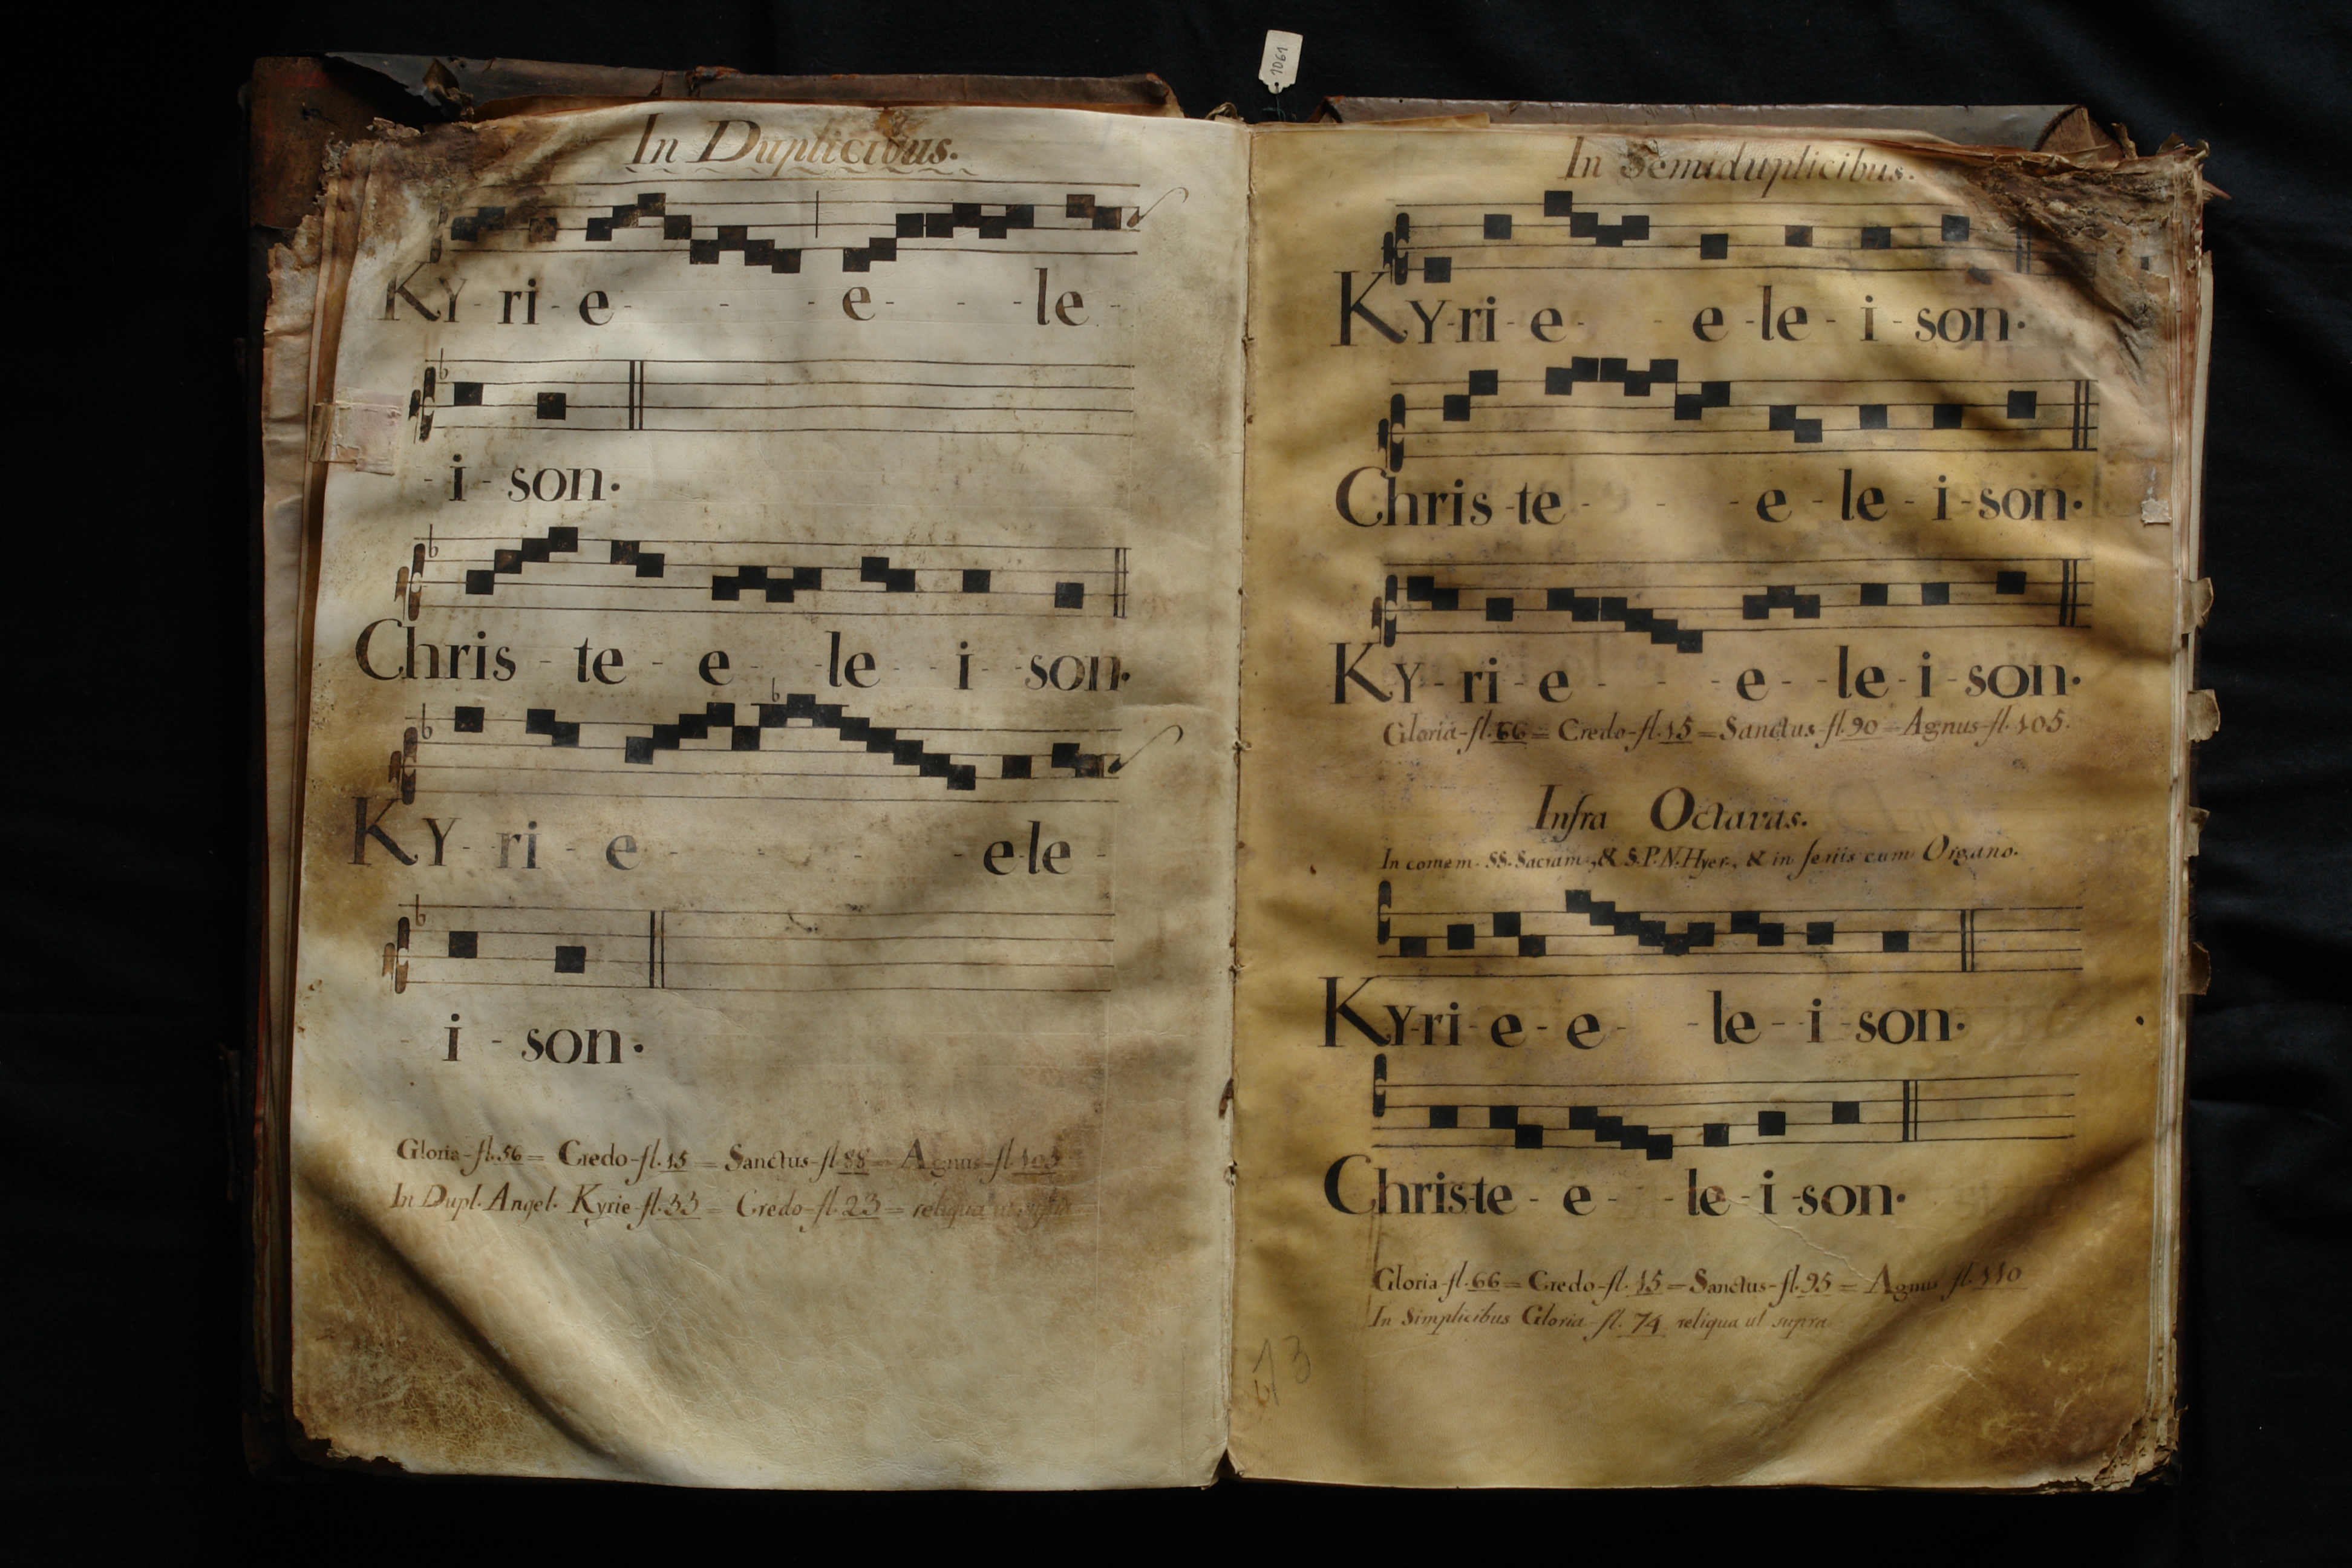 1061
In Duplicibus.
KY - ri - e - - - e - - - le -
- i - son.
Chris - te - e - le - i - son.
KY - ri - e - - - e - le -
- i - son.
Gloria - fl. 56 = Credo - fl. 15 = Sanctus - fl. 88 = Agnus - fl. 105
In Dupl. Angel. Kyrie - fl. 33 = Credo - fl. 23 = reliqua ut supra
In Semiduplicibus.
KY - ri - e - - e - le - i - son.
Chris - te - - - e - le - i - son.
KY - ri - e - - - e - - le - i - son.
Gloria - fl. 66 = Credo - fl. 15 = Sanctus - fl. 90 = Agnus - fl. 105.
Infra Octavas.
In comem. SS. Sacram., & S. P. N. Hyer., & in feriis cum Organo.
KY - ri - e - e - - le - - i - son.
Christe - e - - le - i - son.
Gloria - fl. 66 = Credo - fl. 15 = Sanctus - fl. 95 = Agnus fl. 110
In Simplicibus Gloria fl. 74 reliqua ut supra